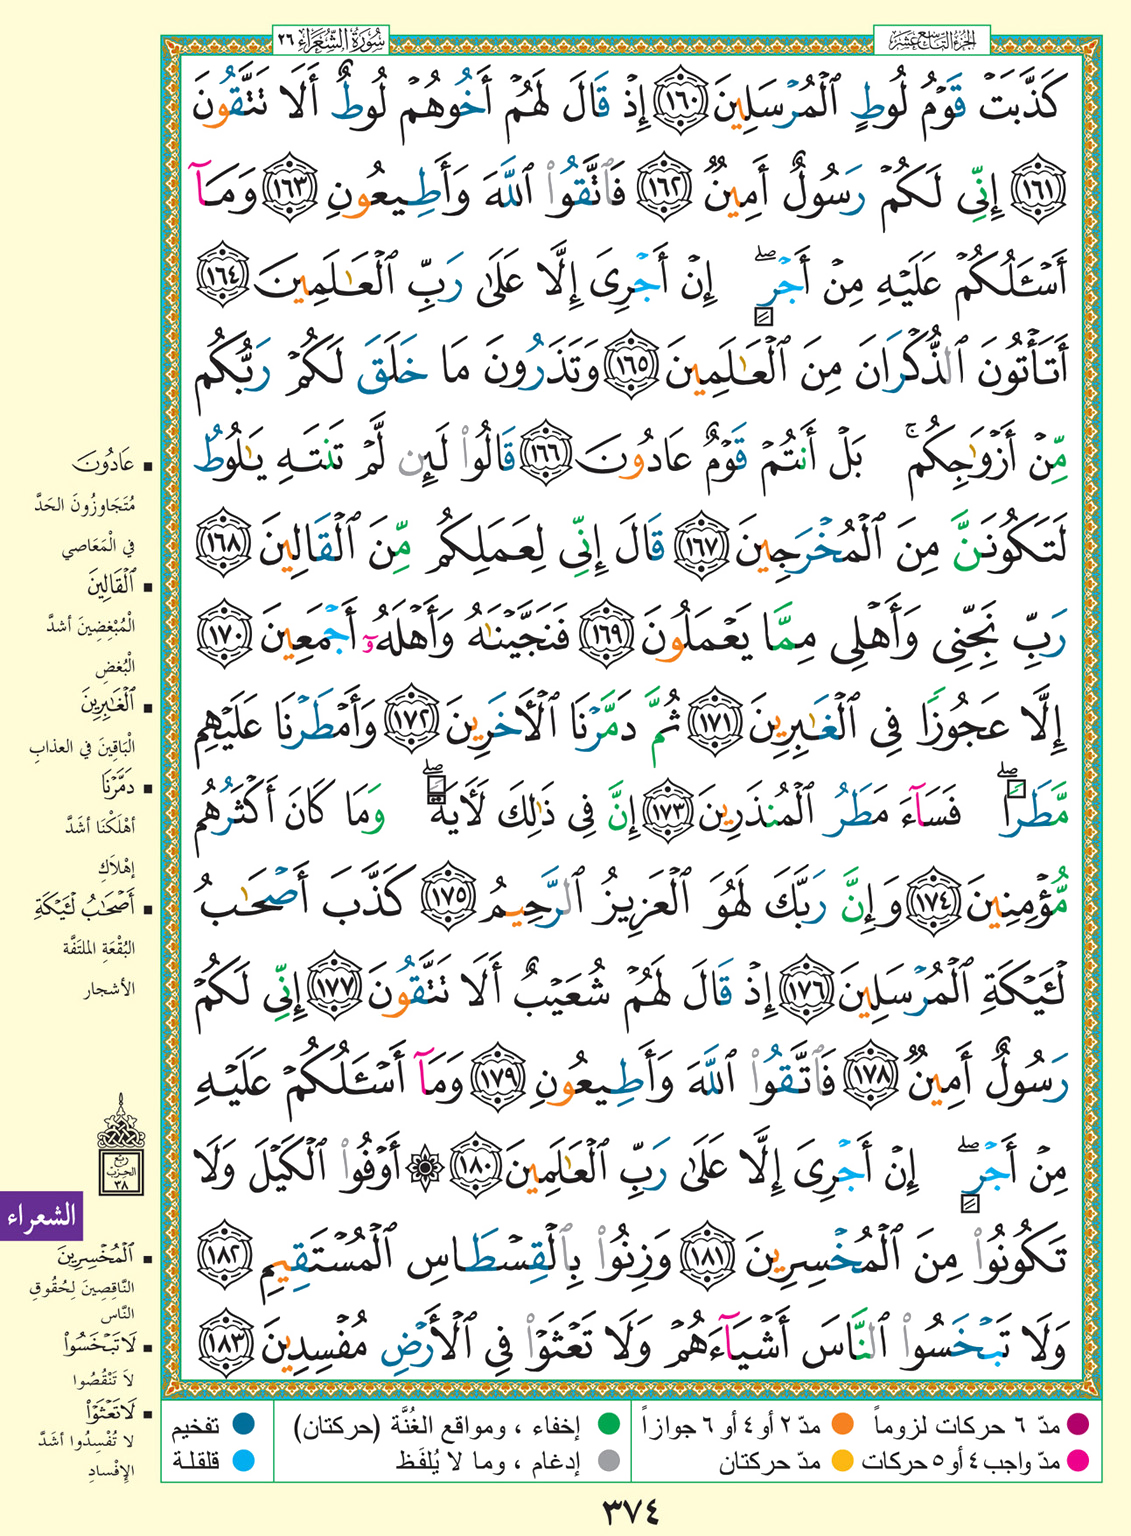 الجزء التاسع عشر
سورة الشعراء ٢٦
كَذَّبَتْ قَوْمُ لُوطٍ ٱلْمُرْسَلِينَ ١٦٠ إِذْ قَالَ لَهُمْ أَخُوهُمْ لُوطٌ أَلَا تَتَّقُونَ
١٦١ إِنِّى لَكُمْ رَسُولٌ أَمِينٌ ١٦٢ فَٱتَّقُوا۟ ٱللَّهَ وَأَطِيعُونِ ١٦٣ وَمَآ
أَسْـَٔلُكُمْ عَلَيْهِ مِنْ أَجْرٍ ۖ إِنْ أَجْرِىَ إِلَّا عَلَىٰ رَبِّ ٱلْعَـٰلَمِينَ ١٦٤
أَتَأْتُونَ ٱلذُّكْرَانَ مِنَ ٱلْعَـٰلَمِينَ ١٦٥ وَتَذَرُونَ مَا خَلَقَ لَكُمْ رَبُّكُم
مِّنْ أَزْوَٰجِكُم ۚ بَلْ أَنتُمْ قَوْمٌ عَادُونَ ١٦٦ قَالُوا۟ لَئِن لَّمْ تَنتَهِ يَـٰلُوطُ
لَتَكُونَنَّ مِنَ ٱلْمُخْرَجِينَ ١٦٧ قَالَ إِنِّى لِعَمَلِكُم مِّنَ ٱلْقَالِينَ ١٦٨
رَبِّ نَجِّنِى وَأَهْلِى مِمَّا يَعْمَلُونَ ١٦٩ فَنَجَّيْنَـٰهُ وَأَهْلَهُۥٓ أَجْمَعِينَ ١٧٠
إِلَّا عَجُوزًا فِى ٱلْغَـٰبِرِينَ ١٧١ ثُمَّ دَمَّرْنَا ٱلْـَٔاخَرِينَ ١٧٢ وَأَمْطَرْنَا عَلَيْهِم
مَّطَرًا ۖ فَسَآءَ مَطَرُ ٱلْمُنذَرِينَ ١٧٣ إِنَّ فِى ذَٰلِكَ لَـَٔايَةً ۖ وَمَا كَانَ أَكْثَرُهُم
مُّؤْمِنِينَ ١٧٤ وَإِنَّ رَبَّكَ لَهُوَ ٱلْعَزِيزُ ٱلرَّحِيمُ ١٧٥ كَذَّبَ أَصْحَـٰبُ
لْـَٔيْكَةِ ٱلْمُرْسَلِينَ ١٧٦ إِذْ قَالَ لَهُمْ شُعَيْبٌ أَلَا تَتَّقُونَ ١٧٧ إِنِّى لَكُمْ
رَسُولٌ أَمِينٌ ١٧٨ فَٱتَّقُوا۟ ٱللَّهَ وَأَطِيعُونِ ١٧٩ وَمَآ أَسْـَٔلُكُمْ عَلَيْهِ
مِنْ أَجْرٍ ۖ إِنْ أَجْرِىَ إِلَّا عَلَىٰ رَبِّ ٱلْعَـٰلَمِينَ ١٨٠ ۞ أَوْفُوا۟ ٱلْكَيْلَ وَلَا
تَكُونُوا۟ مِنَ ٱلْمُخْسِرِينَ ١٨١ وَزِنُوا۟ بِٱلْقِسْطَاسِ ٱلْمُسْتَقِيمِ ١٨٢
وَلَا تَبْخَسُوا۟ ٱلنَّاسَ أَشْيَآءَهُمْ وَلَا تَعْثَوْا۟ فِى ٱلْأَرْضِ مُفْسِدِينَ ١٨٣
عَادُونَ
مُتَجَاوِزُونَ الحَدَّ
في الْمَعَاصي
ٱلْقَالِينَ
الْمُبْغِضِينَ أشدَّ
الْبُغضِ
ٱلْغَـٰبِرِينَ
الْبَاقِينَ في العذابِ
دَمَّرْنَا
أهْلَكْنَا أشَدَّ
إهْلَاكِ
أَصْحَـٰبُ لْـَٔيْكَةِ
البُقْعَةِ الملتَفَّة
الأشجار
ربع
الحزب
٣٨
الشعراء
ٱلْمُخْسِرِينَ
النَّاقِصِينَ لِحُقُوقِ
النَّاس
لَا تَبْخَسُوا۟
لَا تَنْقُصُوا
لَا تَعْثَوْا۟
لا تُفْسِدُوا أشَدَّ
الإفْسادِ
مدّ ٦ حركات لزوماً
مدّ ٢ أو ٤ أو ٦ جوازاً
إخفاء ، ومواقع الغُنَّة (حركتان)
تفخيم
مدّ واجب ٤ أو ٥ حركات
مدّ حركتان
إدغام ، وما لا يُلفَظ
قلقلة
٣٧٤